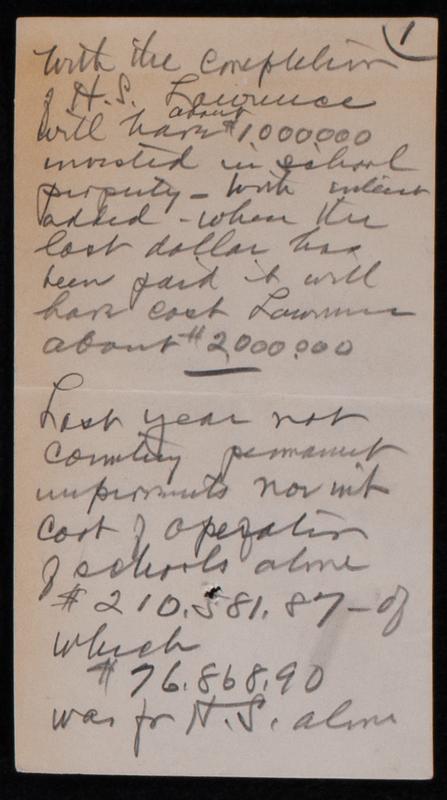 1
With the completion
of H.S. Lawrence
will have about $1000000
invested in school
property - With interest
added - when the
last dollar has
been paid it will
have cost Lawrence
about $2000.000
Last year not
counting permanent
improvments nor int
cost of operation
of schools alone
$210.581.87 - of
which
$76.868.90
was for H.S. alone